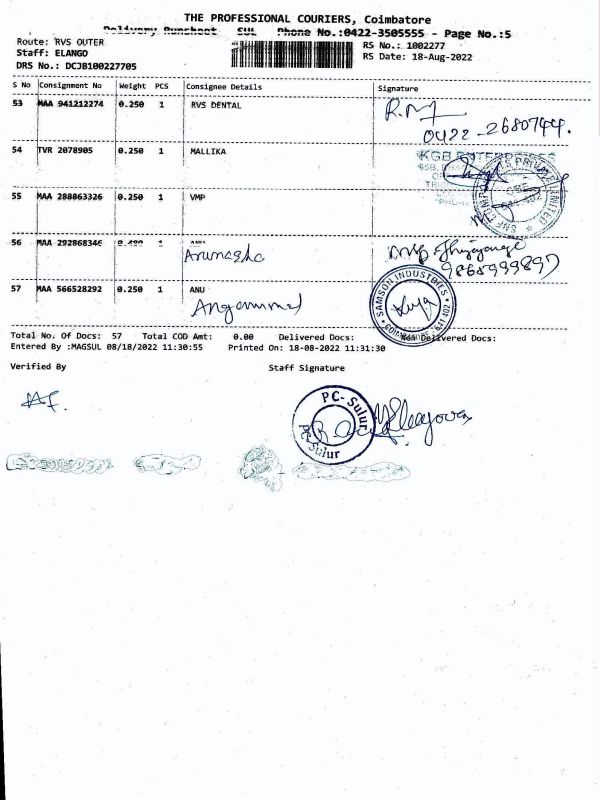 THE PROFESSIONAL COURIERS, Coimbatore
Delivery Runsheet SUL Phone No.:0422-3505555 - Page No.:5
Route: RVS OUTER
Staff: ELANGO
DRS No.: DCJB100227705
RS No.: 1002277
RS Date: 18-Aug-2022
S No Consignment No Weight PCS Consignee Details Signature
53 MAA 941212274 0.250 1 RVS DENTAL
0422-2680744.
54 TVR 2078905 0.250 1 MALLIKA
KGB ENTERPRISES
55 MAA 288863326 0.250 1 VMP
56 MAA 292868346 0.490 1 ANU
9868999897
57 MAA 566528292 0.250 1 ANU
SAMSON INDUSTRIES
COIMBATORE - 641 402
Total No. Of Docs: 57 Total COD Amt: 0.00 Delivered Docs: Not Delivered Docs:
Entered By :MAGSUL 08/18/2022 11:30:55 Printed On: 18-08-2022 11:31:30
Verified By Staff Signature
PC-Sulur
Sulur